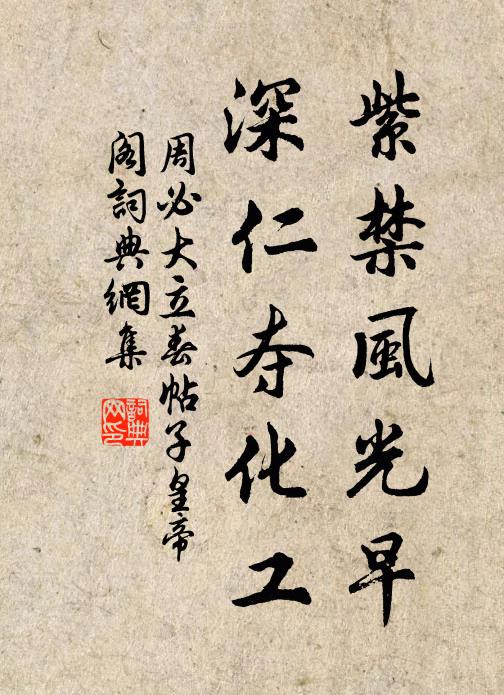 紫禁風光早
深仁夺化工
周必大立春帖子皇帝
阁詞典網集
詞典
网印